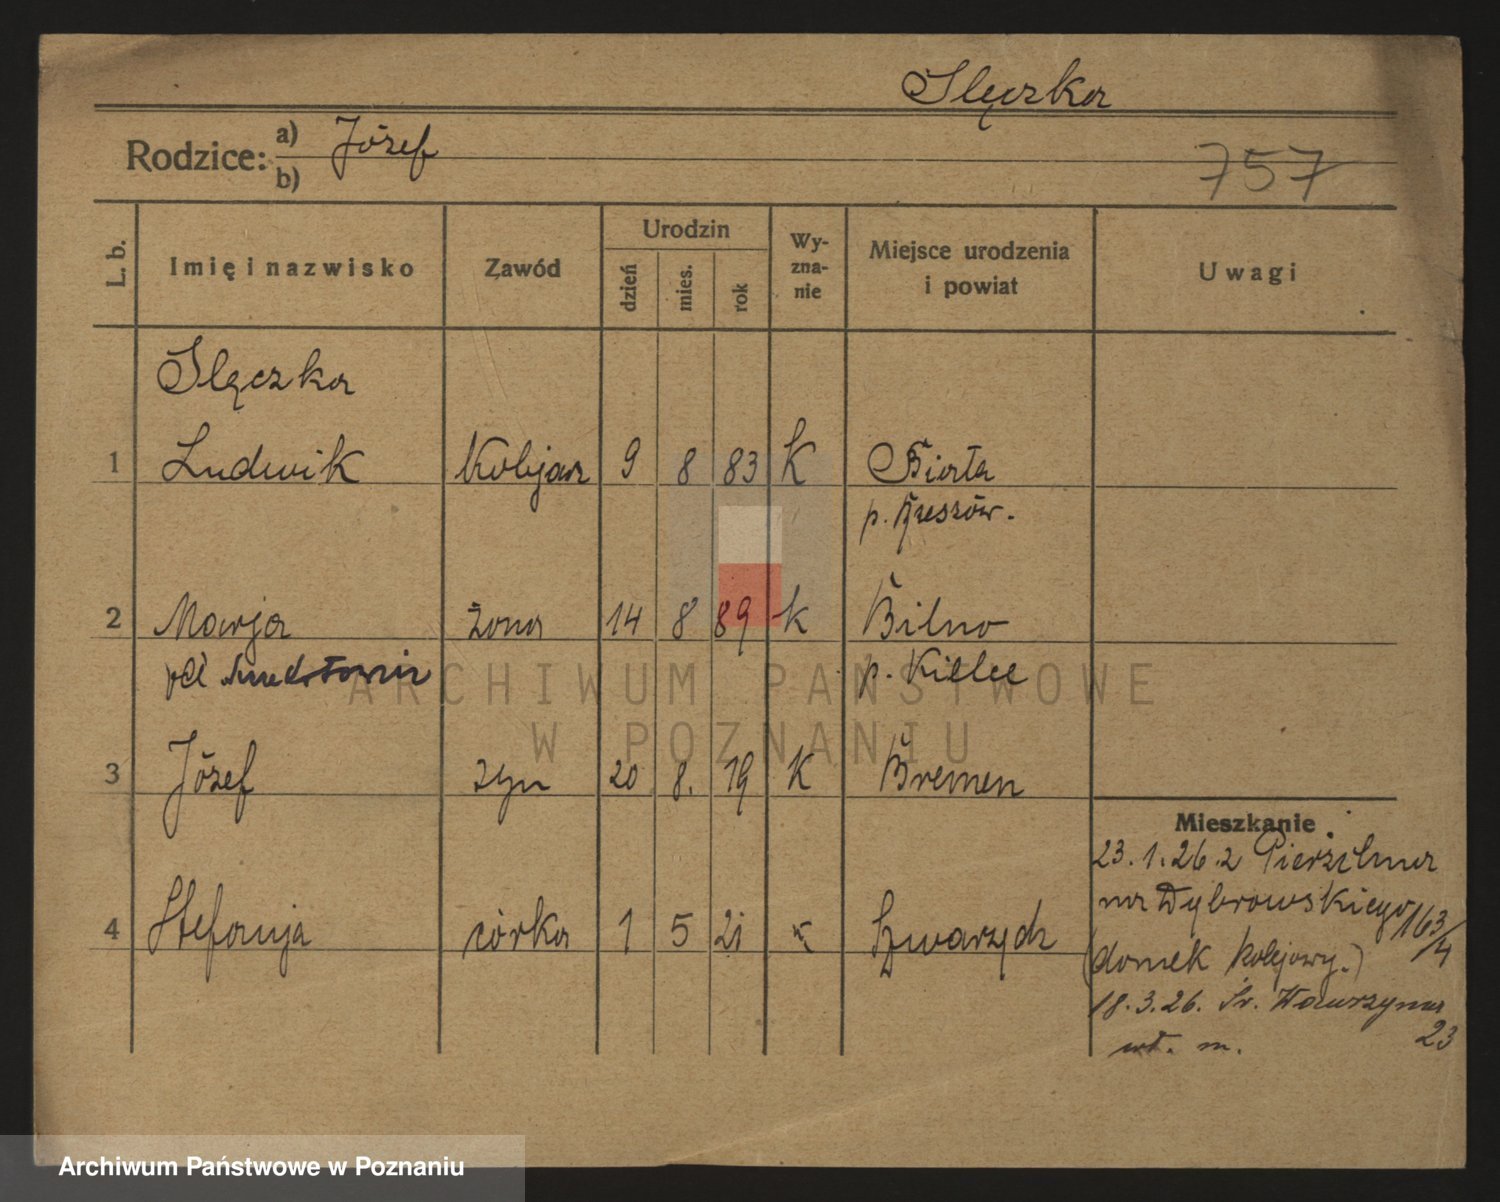 Ślęczka
Rodzice: a) Józef
b)
757
L. b. Imię i nazwisko Zawód Urodzin dzień mies. rok Wyznanie Miejsce urodzenia i powiat Uwagi
Ślęczka
1 Ludwik Kolejarz 9 8 83 K
p. Rzeszów.
2 Marja żona 14 8 89 K Bilno
p. Kielce
3 Józef syn 20 8. 19 K Bremen
Mieszkanie
23.1.26. z
na Dąbrowskiego 163/4
4 Stefanja córka 1 5 21 K
(domek kolejowy.)
18.3.26. Św. Wawrzyńca
23
wł. m.
ARCHIWUM PAŃSTWOWE
W POZNANIU
Archiwum Państwowe w Poznaniu